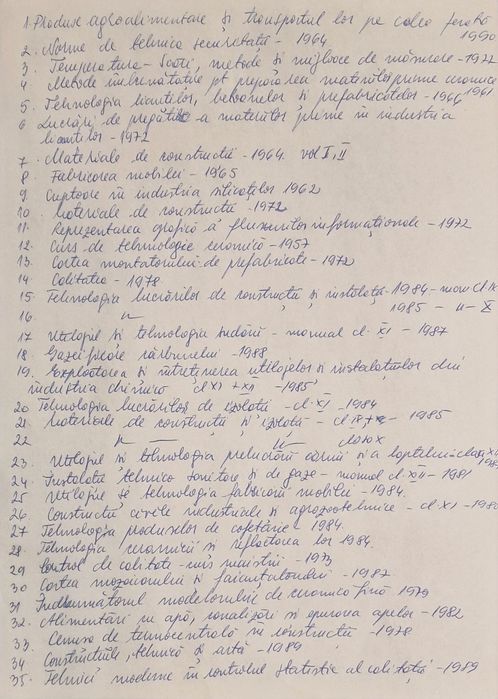 1. Produse agroalimentare și transportul lor pe calea ferată
1990
2. Norme de tehnica securității - 1964
3. Temperatura - Scări, metode și mijloace de măsurare - 1972
4 Metode îmbunătățite pt prepararea materiilor prime ceramice
1961
5. Tehnologia lianților, betoanelor și prefabricatelor - 1966
6 Lucrări de pregătire a materiilor prime în industria
lianților - 1972
7. Materiale de construcții - 1964. vol I, II
8. Fabricarea mobilei - 1965
9. Cuptoare în industria silicaților 1962
10. Materiale de construcții - 1972
11. Reprezentarea grafică a fluxurilor informaționale - 1972
12. Curs de tehnologie ceramică - 1957
13. Cartea montatorului de prefabricate - 1972
14. Calitatea - 1978
15. Tehnologia lucrărilor de construcții și instalații - 1984 - man cl. IX
16. -〃- 1985 -〃- X
17. Utilajul și tehnologia sudării - manual cl. XI - 1987
18. Gazeificarea cărbunelui - 1988
19. Exploatarea și întreținerea utilajelor și instalațiilor din
industria chimică cl XI + XII - 1985
20 Tehnologia lucrărilor de izolații - cl. XI - 1984
21. Materiale de construcții și izolații - cl IX + X - 1985
22 -〃- -〃- clasa X
23. Utilajul și tehnologia prelucrării cărnii și a laptelui - clasa XI
24. Instalații tehnico sanitare și de gaze - manual cl. XII - 1981
25. Utilajul și tehnologia fabricării mobilei - 1984.
26 Construcții civile industriale și agrozootehnice - cl XI - 1980
27 Tehnologia produselor de cofetărie - 1984.
28. Tehnologia ceramicii și refractarea lor 1984.
29 Control de calitate - curs maiștrii - 1973
30 Cartea mozaicarului și faianțatorului - 1987
31 Îndrumătorul modelorului de ceramică fină 1979
32. Alimentări cu apă, canalizări și epurarea apelor - 1982
33. Cenușa de termocentrală în construcții - 1978
34 Construcțiile, tehnică și artă - 1989
35. Tehnici moderne în controlul statistic al calității - 1989